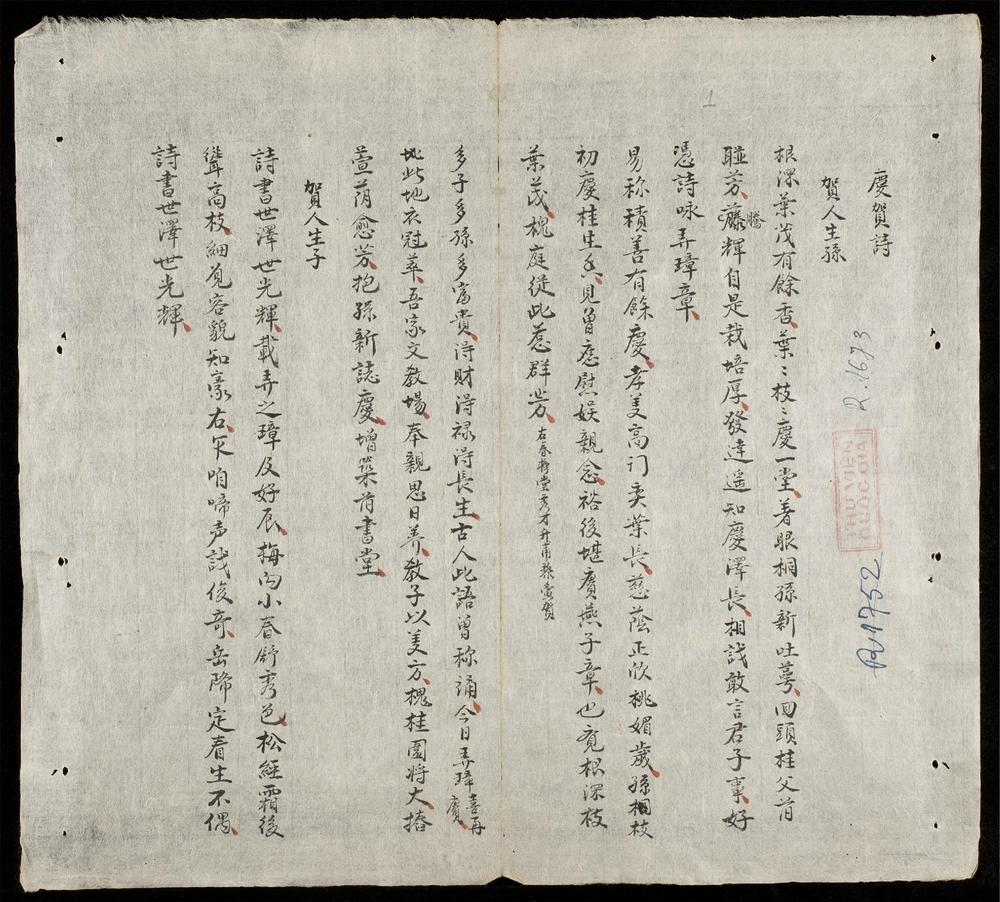 慶賀詩
賀人生孫
根深葉茂有餘香葉〻枝〻慶一堂着眼桐孫新吐萼回頭桂父前
聯芳藤騰輝自是栽培厚發達遥知慶澤長相誠敢言君子事好
憑詩咏弄璋章
易称積善有餘慶孝美高门奕葉長慈蔭正欣桃媚歲孫桐枝
初慶桂生香見曾應慰娱親念裕後堪賡燕子章也竟根深枝
葉茂槐庭從此惹群芳 右春堂秀才賀
多子多孫多富貴得財得禄得長生古人此語曾称誦今日弄璋喜再賡
地此地衣冠萃吾家文教場奉親思日養教子以美方槐桂園將大椿
萱荫愈芳抱孫新誌慶增築前書堂
賀人生子
詩書世澤世光輝載弄之璋及好辰梅向小春舒秀色松經霜後
聳高枝細覓容貌知豪右咱啼声誠俊奇岳降定看生不偶
詩書世澤世光輝
1
R.1693
THƯ VIỆN
QUỐC GIA
R1752